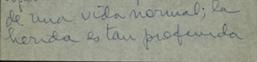 de una vida normal; la
herida es tan profunda